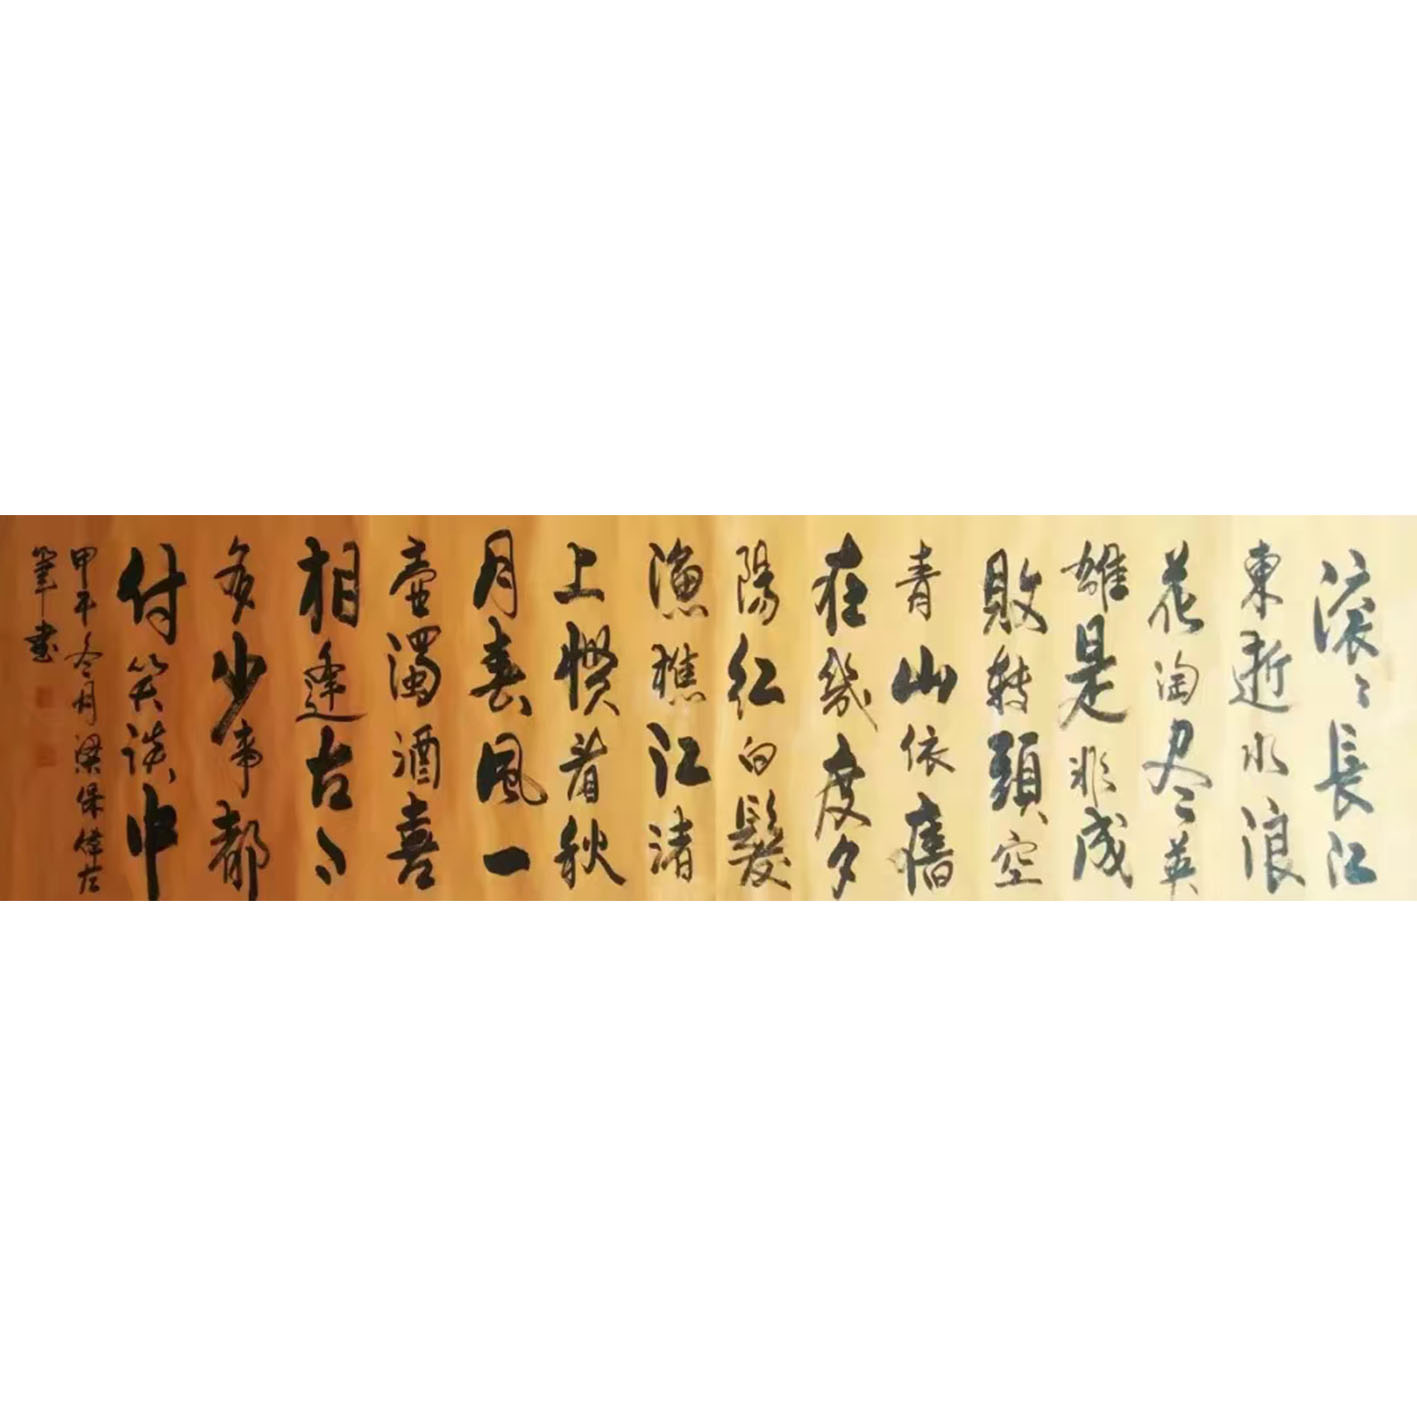 滚〻長江
東逝水浪
花淘尽英
雄是非成
敗轉頭空
青山依舊
在幾度夕
陽紅白髮
漁樵江渚
上慣看秋
月春風一
壺濁酒喜
相逢古今
多少事都
付笑談中
甲午冬月梁保偉左
筆書